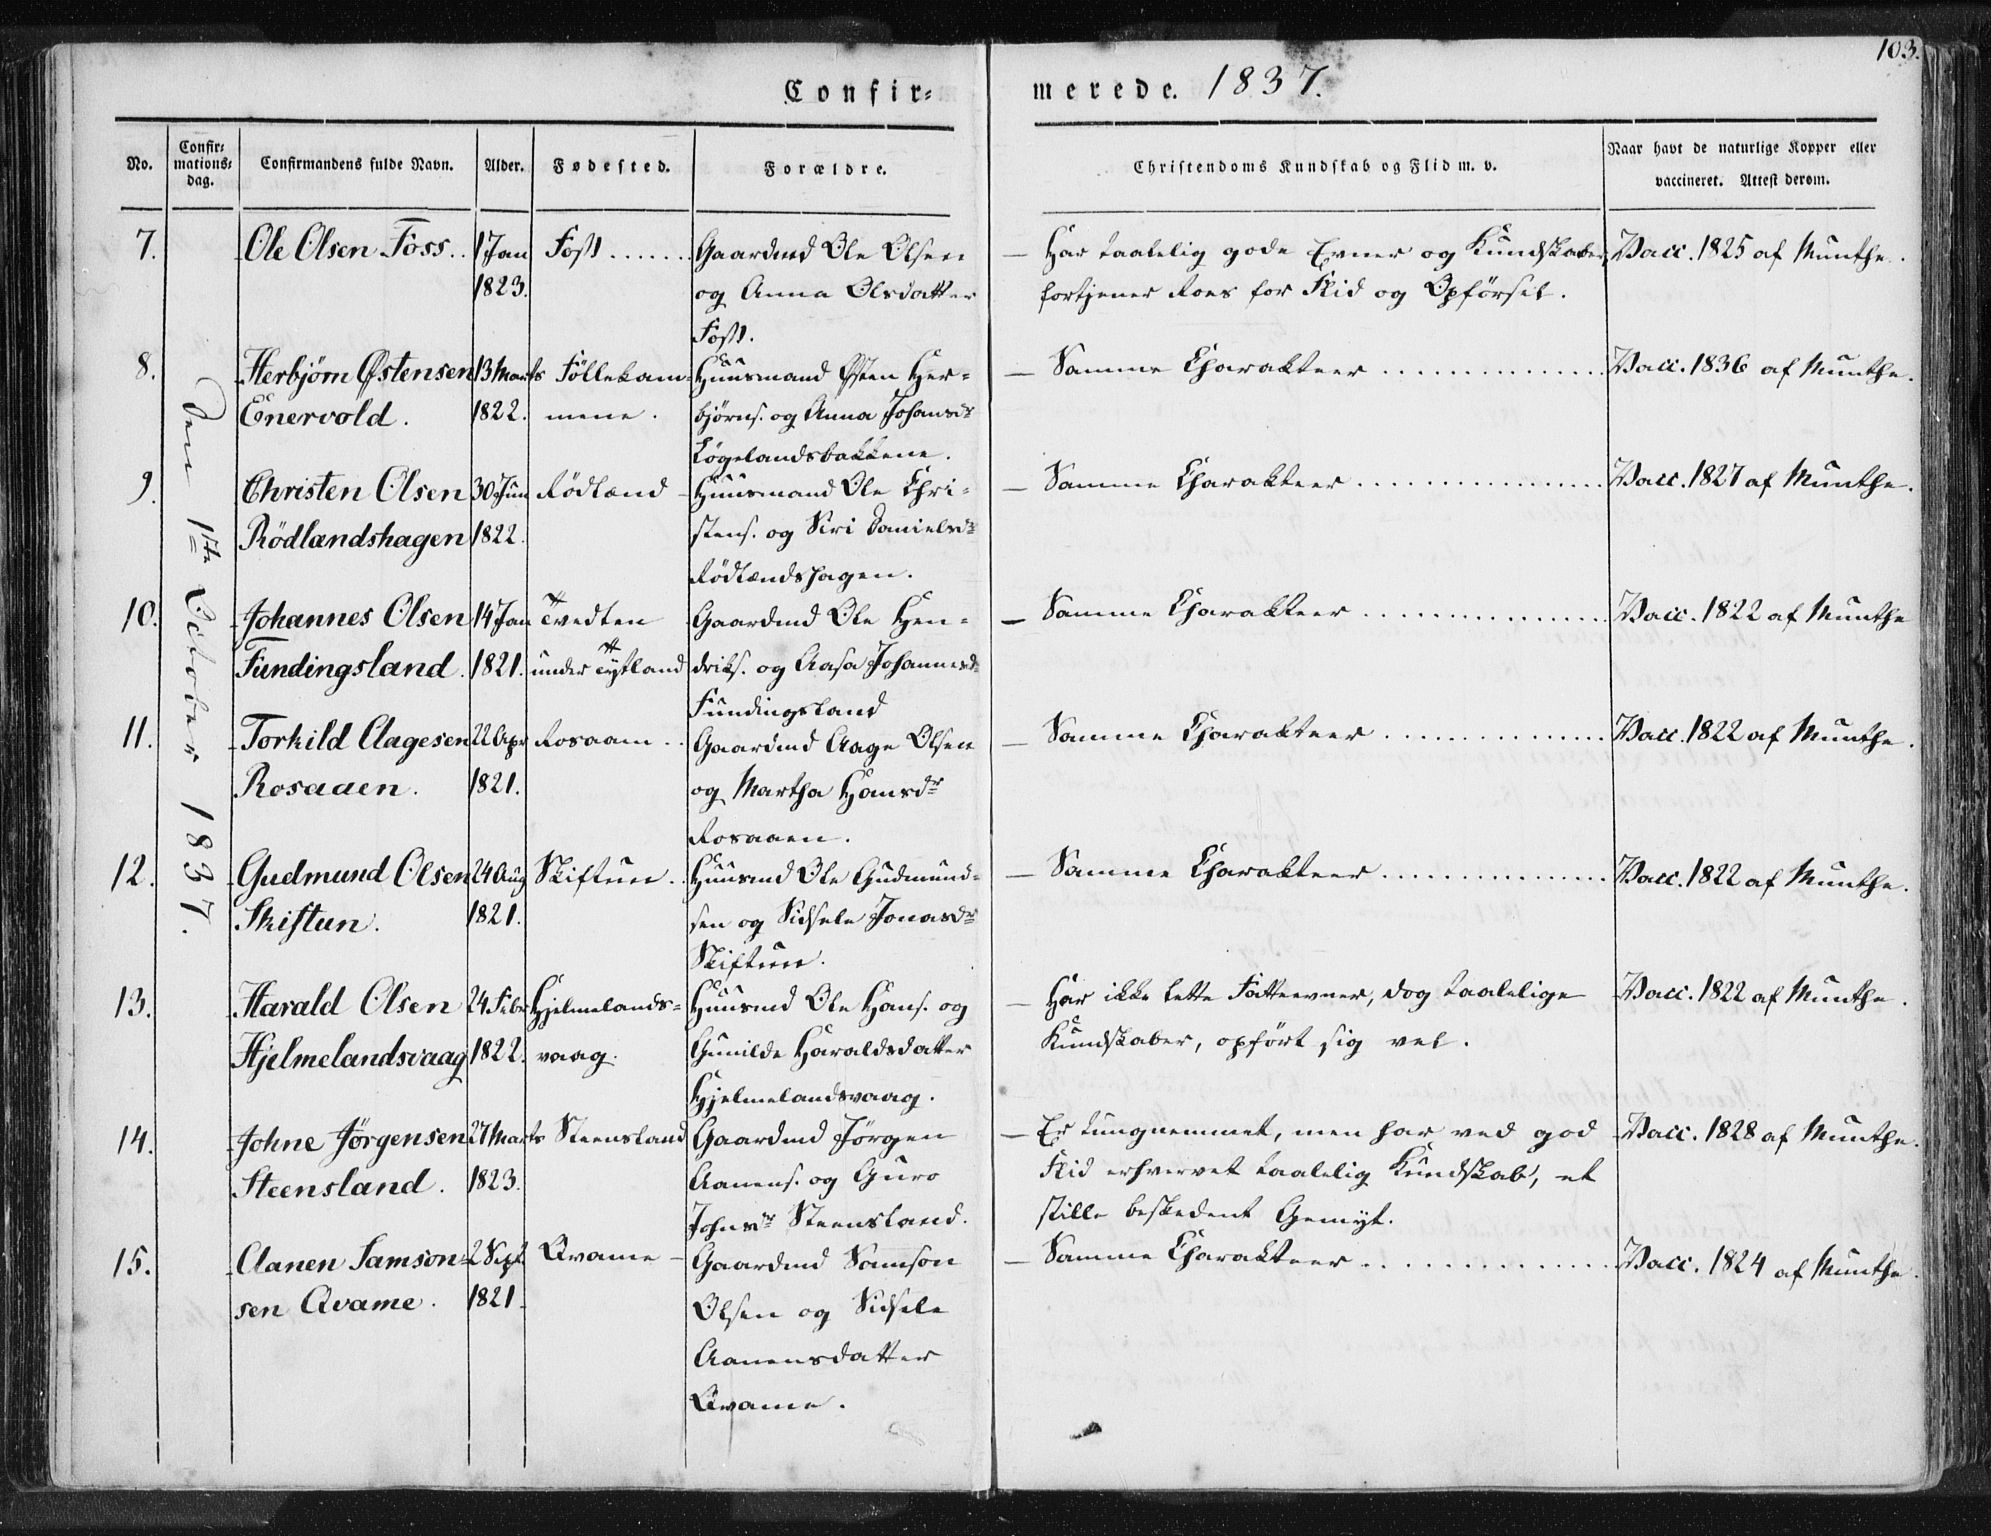 103.
Confir=
merede. 1837.
No.
Confir=
mations=
dag.
Confirmandens fulde Navn.
Alder.
Fødested.
Forældre.
Christendoms Kundskab og Flid m. v.
Naar havt de naturlige Kopper eller
vaccineret. Attest derom.
Den 1ste October 1837.
7. Ole Olsen Foss. 1 Jan Foss ...... Gaardmd Ole Olsen — Har taalelig gode Evner og Kundskaber, Vacc. 1825 af Munthe.
1823. og Anna Olsdatter fortjener Roes for Flid og Opførsel.
Foss.
8. Herbjørn Østensen 13 Marts Föllekam= Huusmand Østen Her= — Samme Charakteer ............... Vacc. 1836 af Munthe.
Enervold. 1822. mene. bjørns. og Anna Johansdr
Løgelandsbakkene.
9. Christen Olsen 30 Jun Rödland — Huusmand Ole Chri= — Samme Charakteer ............... Vacc. 1827 af Munthe.
Rödlandshagen 1822. stens. og Siri Danielsdr
Rödlandshagen.
10. Johannes Olsen 14 Jan Tvedten Gaardmd Ole Hen= — Samme Charakteer ............... Vacc. 1822 af Munthe
Fundingsland. 1821. under Tytland driks. og Aasa Johannesdr
Fundingsland
11. Torkild Aagesen 22 Apr Rosaaen .. Gaardmd Aage Olsen — Samme Charakteer ............... Vacc. 1822 af Munthe.
Rosaaen. 1821. og Martha Hansdr
Rosaaen.
12. Gudmund Olsen 24 Aug Skiftun .. Huusmd Ole Gudmund= — Samme Charakteer ............... Vacc. 1822 af Munthe.
Skiftun. 1821. sen og Sidsele Jonasdr
Skiftun.
13. Harald Olsen 24 Febr Hjelmelands= Huusmd Ole Hans. og — Har ikke lette Fatteevner, dog taalelige Vacc. 1822 af Munthe.
Hjelmelandsvaag 1822. vaag. Gunilde Haraldsdatter Kundskaber, opført sig vel.
Hjelmelandsvaag.
14. Johne Jørgensen 27 Marts Steensland Gaardmd Jørgen — Er tungnemmet, men har ved god Vacc. 1828 af Munthe.
Steensland. 1823. Aanens. og Guro Flid erhvervet taalelig Kundskab, et
Johnsdr Steensland. stille beskedent Gemyt.
15. Aanen Samson= 2 Sept. Qvame — Gaardmd Samson — Samme Charakteer ............... Vacc. 1824 af Munthe.
sen Qvame. 1821. Olsen og Sidsele
Aanensdatter
Qvame.